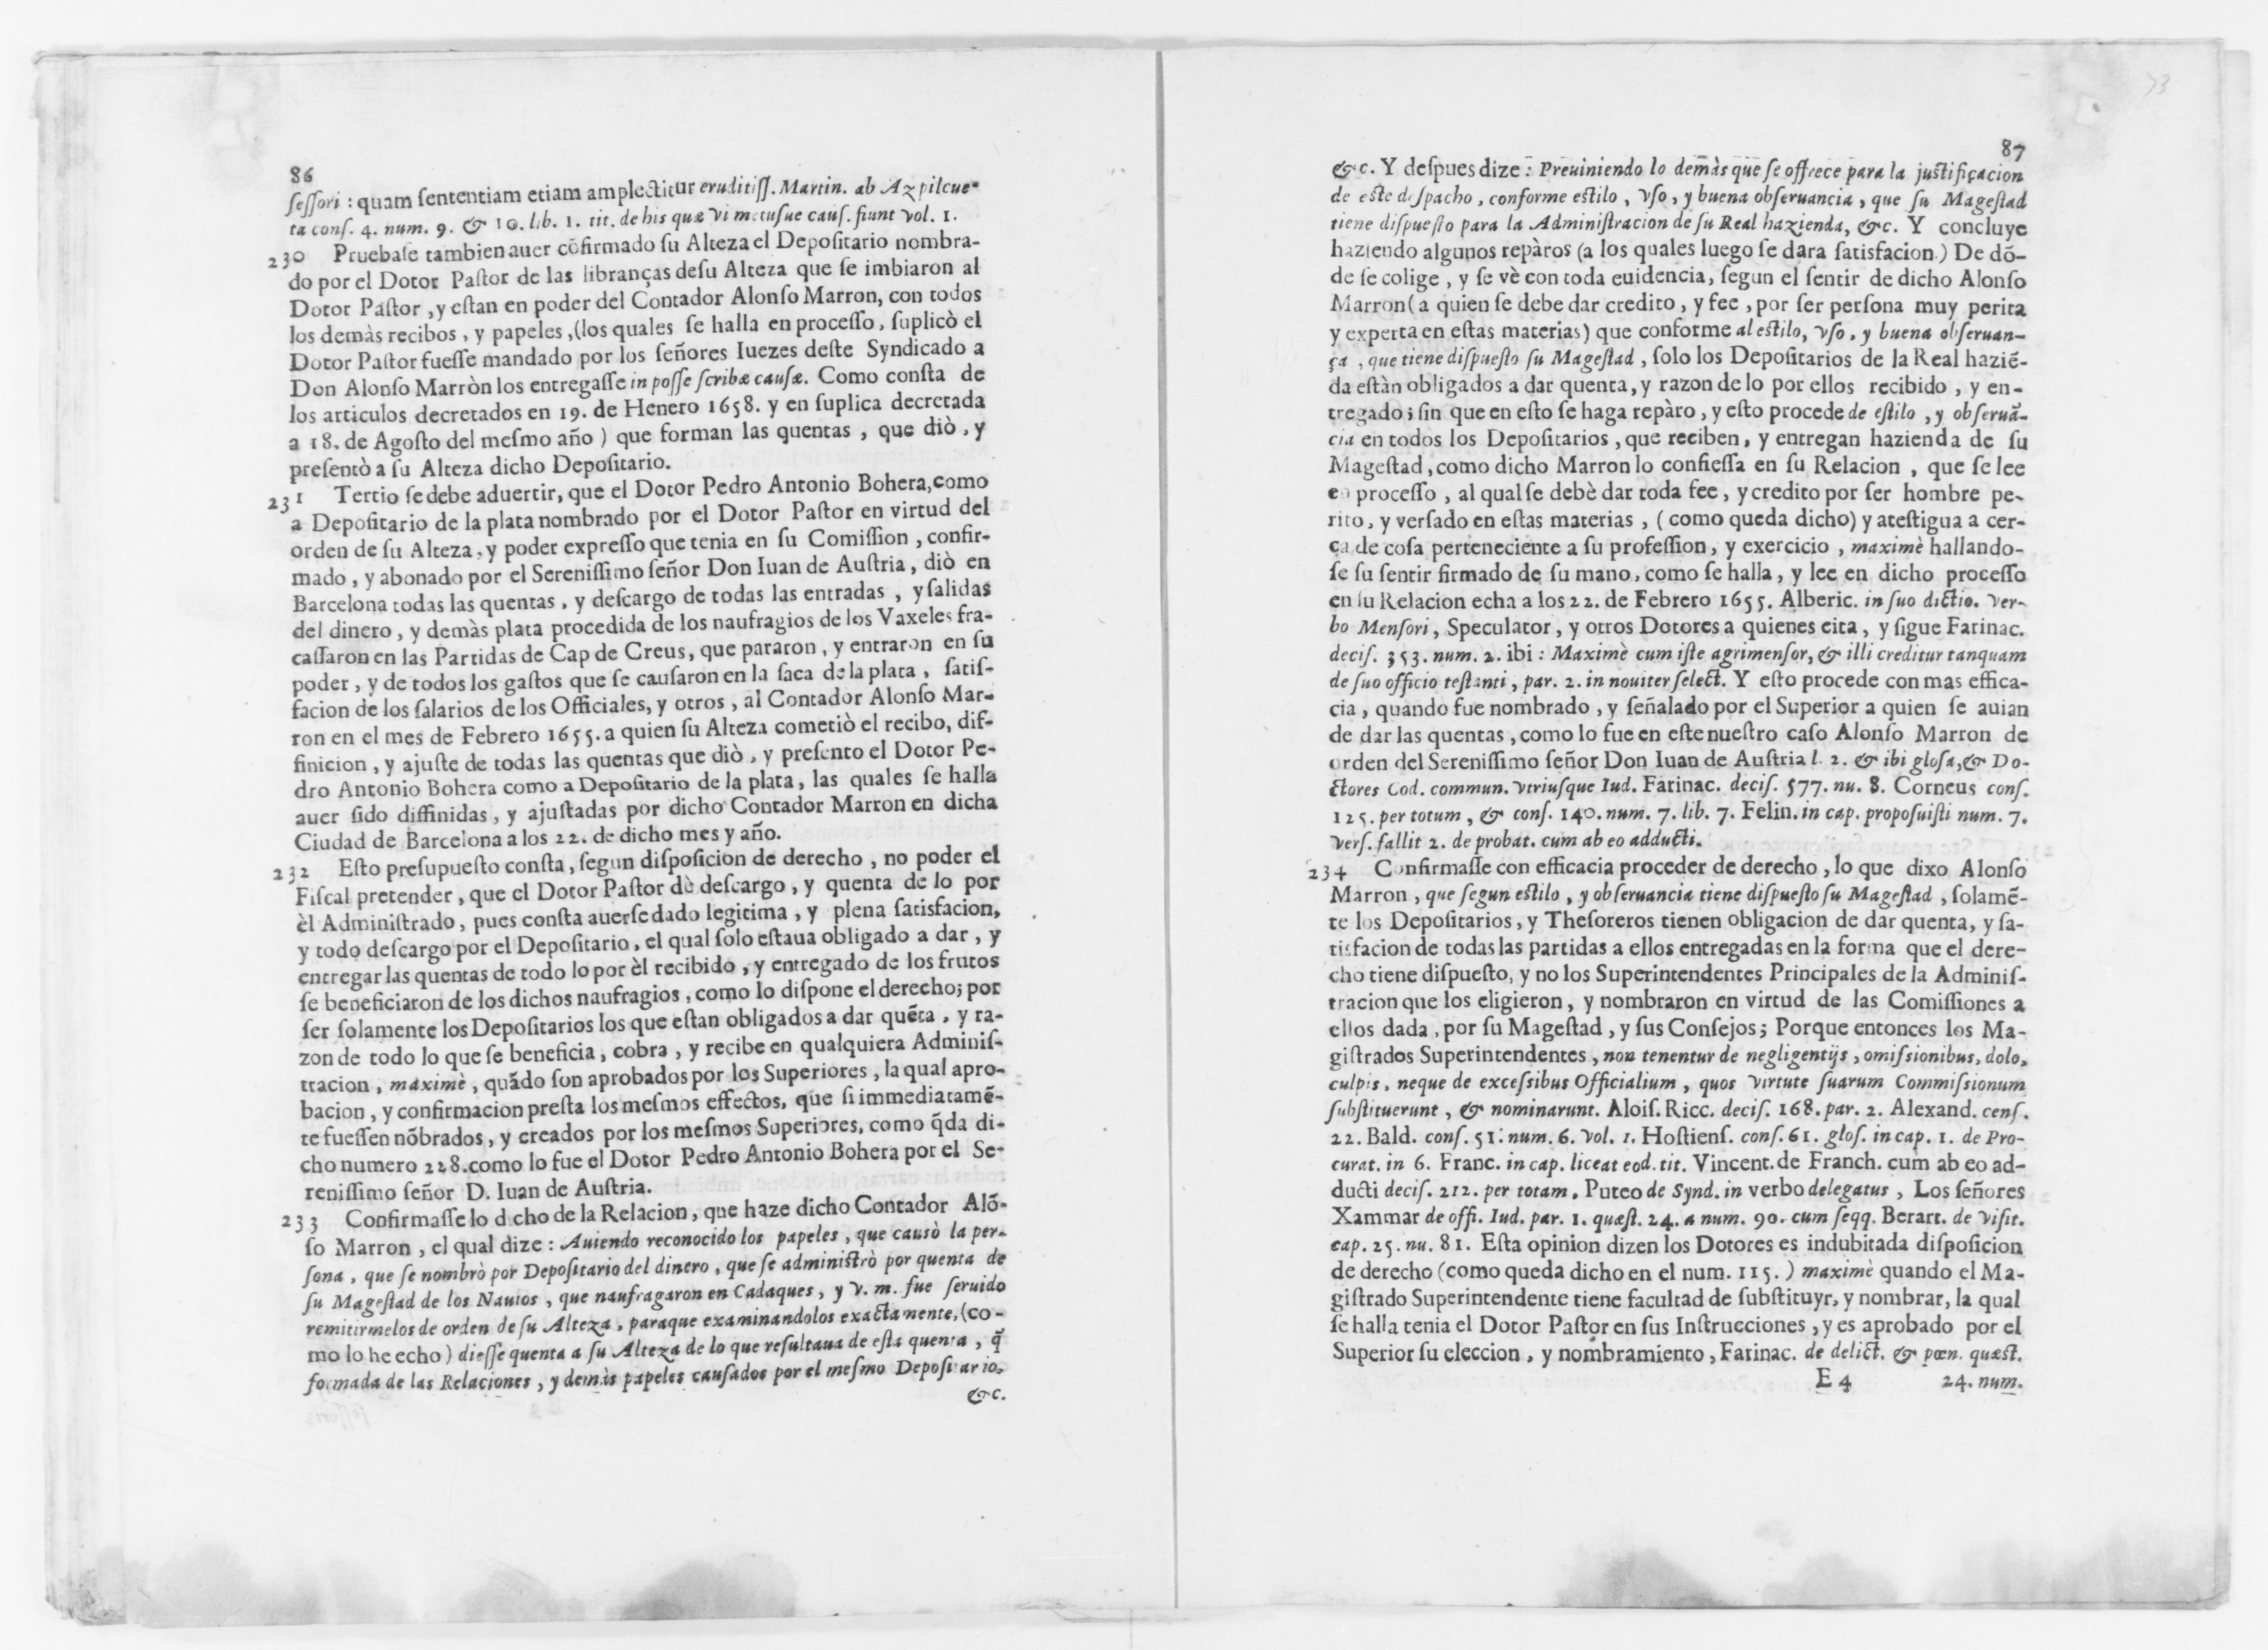 86
ſeſſori : quam ſententiam etiam amplectitur eruditiſſ. Martin. ab Azpilcue-
ta conſ. 4. num. 9. & 10. lib. 1. tit. de his quæ vi metuſue cauſ. fiunt vol. 1.
230 Pruebaſe tambien auer cõfirmado ſu Alteza el Depoſitario nombra-
do por el Dotor Paſtor de las libranças de ſu Alteza que ſe imbiaron al
Dotor Paſtor , y eſtan en poder del Contador Alonſo Marron, con todos
los demàs recibos , y papeles , (los quales ſe halla en proceſſo, ſuplicò el
Dotor Paſtor fueſſe mandado por los ſeñores Iuezes deſte Syndicado a
Don Alonſo Marròn los entregaſſe in poſſe ſcribæ cauſæ. Como conſta de
los articulos decretados en 19. de Henero 1658. y en ſuplica decretada
a 18. de Agoſto del meſmo año ) que forman las quentas , que diò , y
preſentò a ſu Alteza dicho Depoſitario.
231 Tertio ſe debe aduertir, que el Dotor Pedro Antonio Bohera, como
a Depoſitario de la plata nombrado por el Dotor Paſtor en virtud del
orden de ſu Alteza, y poder expreſſo que tenia en ſu Comiſſion , confir-
mado , y abonado por el Sereniſſimo ſeñor Don Iuan de Auſtria , diò en
Barcelona todas las quentas , y deſcargo de todas las entradas , y ſalidas
del dinero , y demàs plata procedida de los naufragios de los Vaxeles fra-
caſſaron en las Partidas de Cap de Creus, que pararon , y entraron en ſu
poder , y de todos los gaſtos que ſe cauſaron en la ſaca de la plata , ſatiſ-
facion de los ſalarios de los Officiales, y otros , al Contador Alonſo Mar-
ron en el mes de Febrero 1655. a quien ſu Alteza cometiò el recibo, dif-
finicion , y ajuſte de todas las quentas que diò , y preſento el Dotor Pe-
dro Antonio Bohera como a Depoſitario de la plata, las quales ſe halla
auer ſido diffinidas , y ajuſtadas por dicho Contador Marron en dicha
Ciudad de Barcelona a los 22. de dicho mes y año.
232 Eſto preſupueſto conſta, ſegun diſpoſicion de derecho , no poder el
Fiſcal pretender , que el Dotor Paſtor dè deſcargo , y quenta de lo por
èl Adminiſtrado , pues conſta auerſe dado legitima , y plena ſatisfacion,
y todo deſcargo por el Depoſitario , el qual ſolo eſtaua obligado a dar , y
entregar las quentas de todo lo por èl recibido , y entregado de los frutos
ſe beneficiaron de los dichos naufragios , como lo diſpone el derecho; por
ſer ſolamente los Depoſitarios los que eſtan obligados a dar quẽta , y ra-
zon de todo lo que ſe beneficia, cobra , y recibe en qualquiera Adminiſ-
tracion , maximè , quãdo ſon aprobados por los Superiores , la qual apro-
bacion , y confirmacion preſta los meſmos effectos, que ſi immediatamẽ-
te fueſſen nõbrados , y creados por los meſmos Superiores, como q̃da di-
cho numero 228. como lo fue el Dotor Pedro Antonio Bohera por el Se-
reniſſimo ſeñor D. Iuan de Auſtria.
233 Confirmaſſe lo dicho de la Relacion , que haze dicho Contador Alõ-
ſo Marron , el qual dize : Auiendo reconocido los papeles , que causò la per-
ſona , que ſe nombrò por Depoſitario del dinero , que ſe adminiſtrò por quenta de
ſu Mageſtad de los Nauios , que naufragaron en Cadaques , y V. m. fue ſeruido
remitirmelos de orden de ſu Alteza , paraque examinandolos exactamente, (co-
mo lo he echo ) dieſſe quenta a ſu Alteza de lo que reſultaua de eſta quenta , q̃
formada de las Relaciones , y demàs papeles cauſados por el meſmo Depoſitario,
&c.
87
&c. Y deſpues dize : Preuiniendo lo demàs que ſe offrece para la juſtificacion
de eſte deſpacho , conforme eſtilo , vſo , y buena obſeruancia , que ſu Mageſtad
tiene diſpueſto para la Adminiſtracion de ſu Real hazienda, &c. Y concluye
haziendo algunos repàros (a los quales luego ſe dara ſatisfacion.) De dõ-
de ſe colige , y ſe vè con toda euidencia, ſegun el ſentir de dicho Alonſo
Marron (a quien ſe debe dar credito , y fee , por ſer perſona muy perita
y experta en eſtas materias) que conforme al eſtilo, vſo, y buena obſeruan-
ça , que tiene diſpueſto ſu Mageſtad , ſolo los Depoſitarios de la Real haziẽ-
da eſtàn obligados a dar quenta, y razon de lo por ellos recibido , y en-
tregado; ſin que en eſto ſe haga repàro , y eſto procede de eſtilo , y obſeruã-
cia en todos los Depoſitarios , que reciben, y entregan hazienda de ſu
Mageſtad, como dicho Marron lo confieſſa en ſu Relacion , que ſe lee
en proceſſo , al qual ſe debè dar toda fee , y credito por ſer hombre pe-
rito, y verſado en eſtas materias , ( como queda dicho) y ateſtigua a cer-
ça de coſa perteneciente a ſu profeſſion, y exercicio , maximè hallando-
ſe ſu ſentir firmado de ſu mano, como ſe halla, y lee en dicho proceſſo
en ſu Relacion echa a los 22. de Febrero 1655. Alberic. in ſuo dictio. ver-
bo Menſori, Speculator, y otros Dotores a quienes cita, y ſigue Farinac.
deciſ. 353. num. 2. ibi : Maximè cum iſte agrimenſor, & illi creditur tanquam
de ſuo officio teſtanti , par. 2. in nouiter ſelect. Y eſto procede con mas effica-
cia, quando fue nombrado , y ſeñalado por el Superior a quien ſe auian
de dar las quentas , como lo fue en eſte nueſtro caſo Alonſo Marron de
orden del Sereniſſimo ſeñor Don Iuan de Auſtria l. 2. & ibi gloſa, & Do-
ctores Cod. commun. vtriuſque Iud. Farinac. deciſ. 577. nu. 8. Corneus conſ.
125. per totum , & conſ. 140. num. 7. lib. 7. Felin. in cap. propoſuiſti num. 7.
verſ. fallit 2. de probat. cum ab eo adducti.
234 Confirmaſſe con efficacia proceder de derecho , lo que dixo Alonſo
Marron , que ſegun eſtilo , y obſeruancia tiene diſpueſto ſu Mageſtad , ſolamẽ-
te los Depoſitarios, y Theſoreros tienen obligacion de dar quenta, y ſa-
tisfacion de todas las partidas a ellos entregadas en la forma que el dere-
cho tiene diſpueſto, y no los Superintendentes Principales de la Adminiſ-
tracion que los eligieron, y nombraron en virtud de las Comiſſiones a
ellos dada , por ſu Mageſtad, y ſus Conſejos; Porque entonces los Ma-
giſtrados Superintendentes , non tenentur de negligentijs , omiſsionibus, dolo,
culpis, neque de exceſsibus Officialium , quos virtute ſuarum Commiſsionum
ſubſtituerunt , & nominarunt. Aloiſ. Ricc. deciſ. 168. par. 2. Alexand. conſ.
22. Bald. conſ. 51. num. 6. vol. 1. Hoſtienſ. conſ. 61. gloſ. in cap. 1. de Pro-
curat. in 6. Franc. in cap. liceat eod. tit. Vincent. de Franch. cum ab eo ad-
ducti deciſ. 212. per totam. Puteo de Synd. in verbo delegatus , Los ſeñores
Xammar de offi. Iud. par. 1. quæſt. 24. a num. 90. cum ſeqq. Berart. de viſit.
cap. 25. nu. 81. Eſta opinion dizen los Dotores es indubitada diſpoſicion
de derecho (como queda dicho en el num. 115. ) maximè quando el Ma-
giſtrado Superintendente tiene facultad de ſubſtituyr, y nombrar, la qual
ſe halla tenia el Dotor Paſtor en ſus Inſtrucciones , y es aprobado por el
Superior ſu eleccion , y nombramiento , Farinac. de delict. & pœn. quæſt.
E 4 24. num.